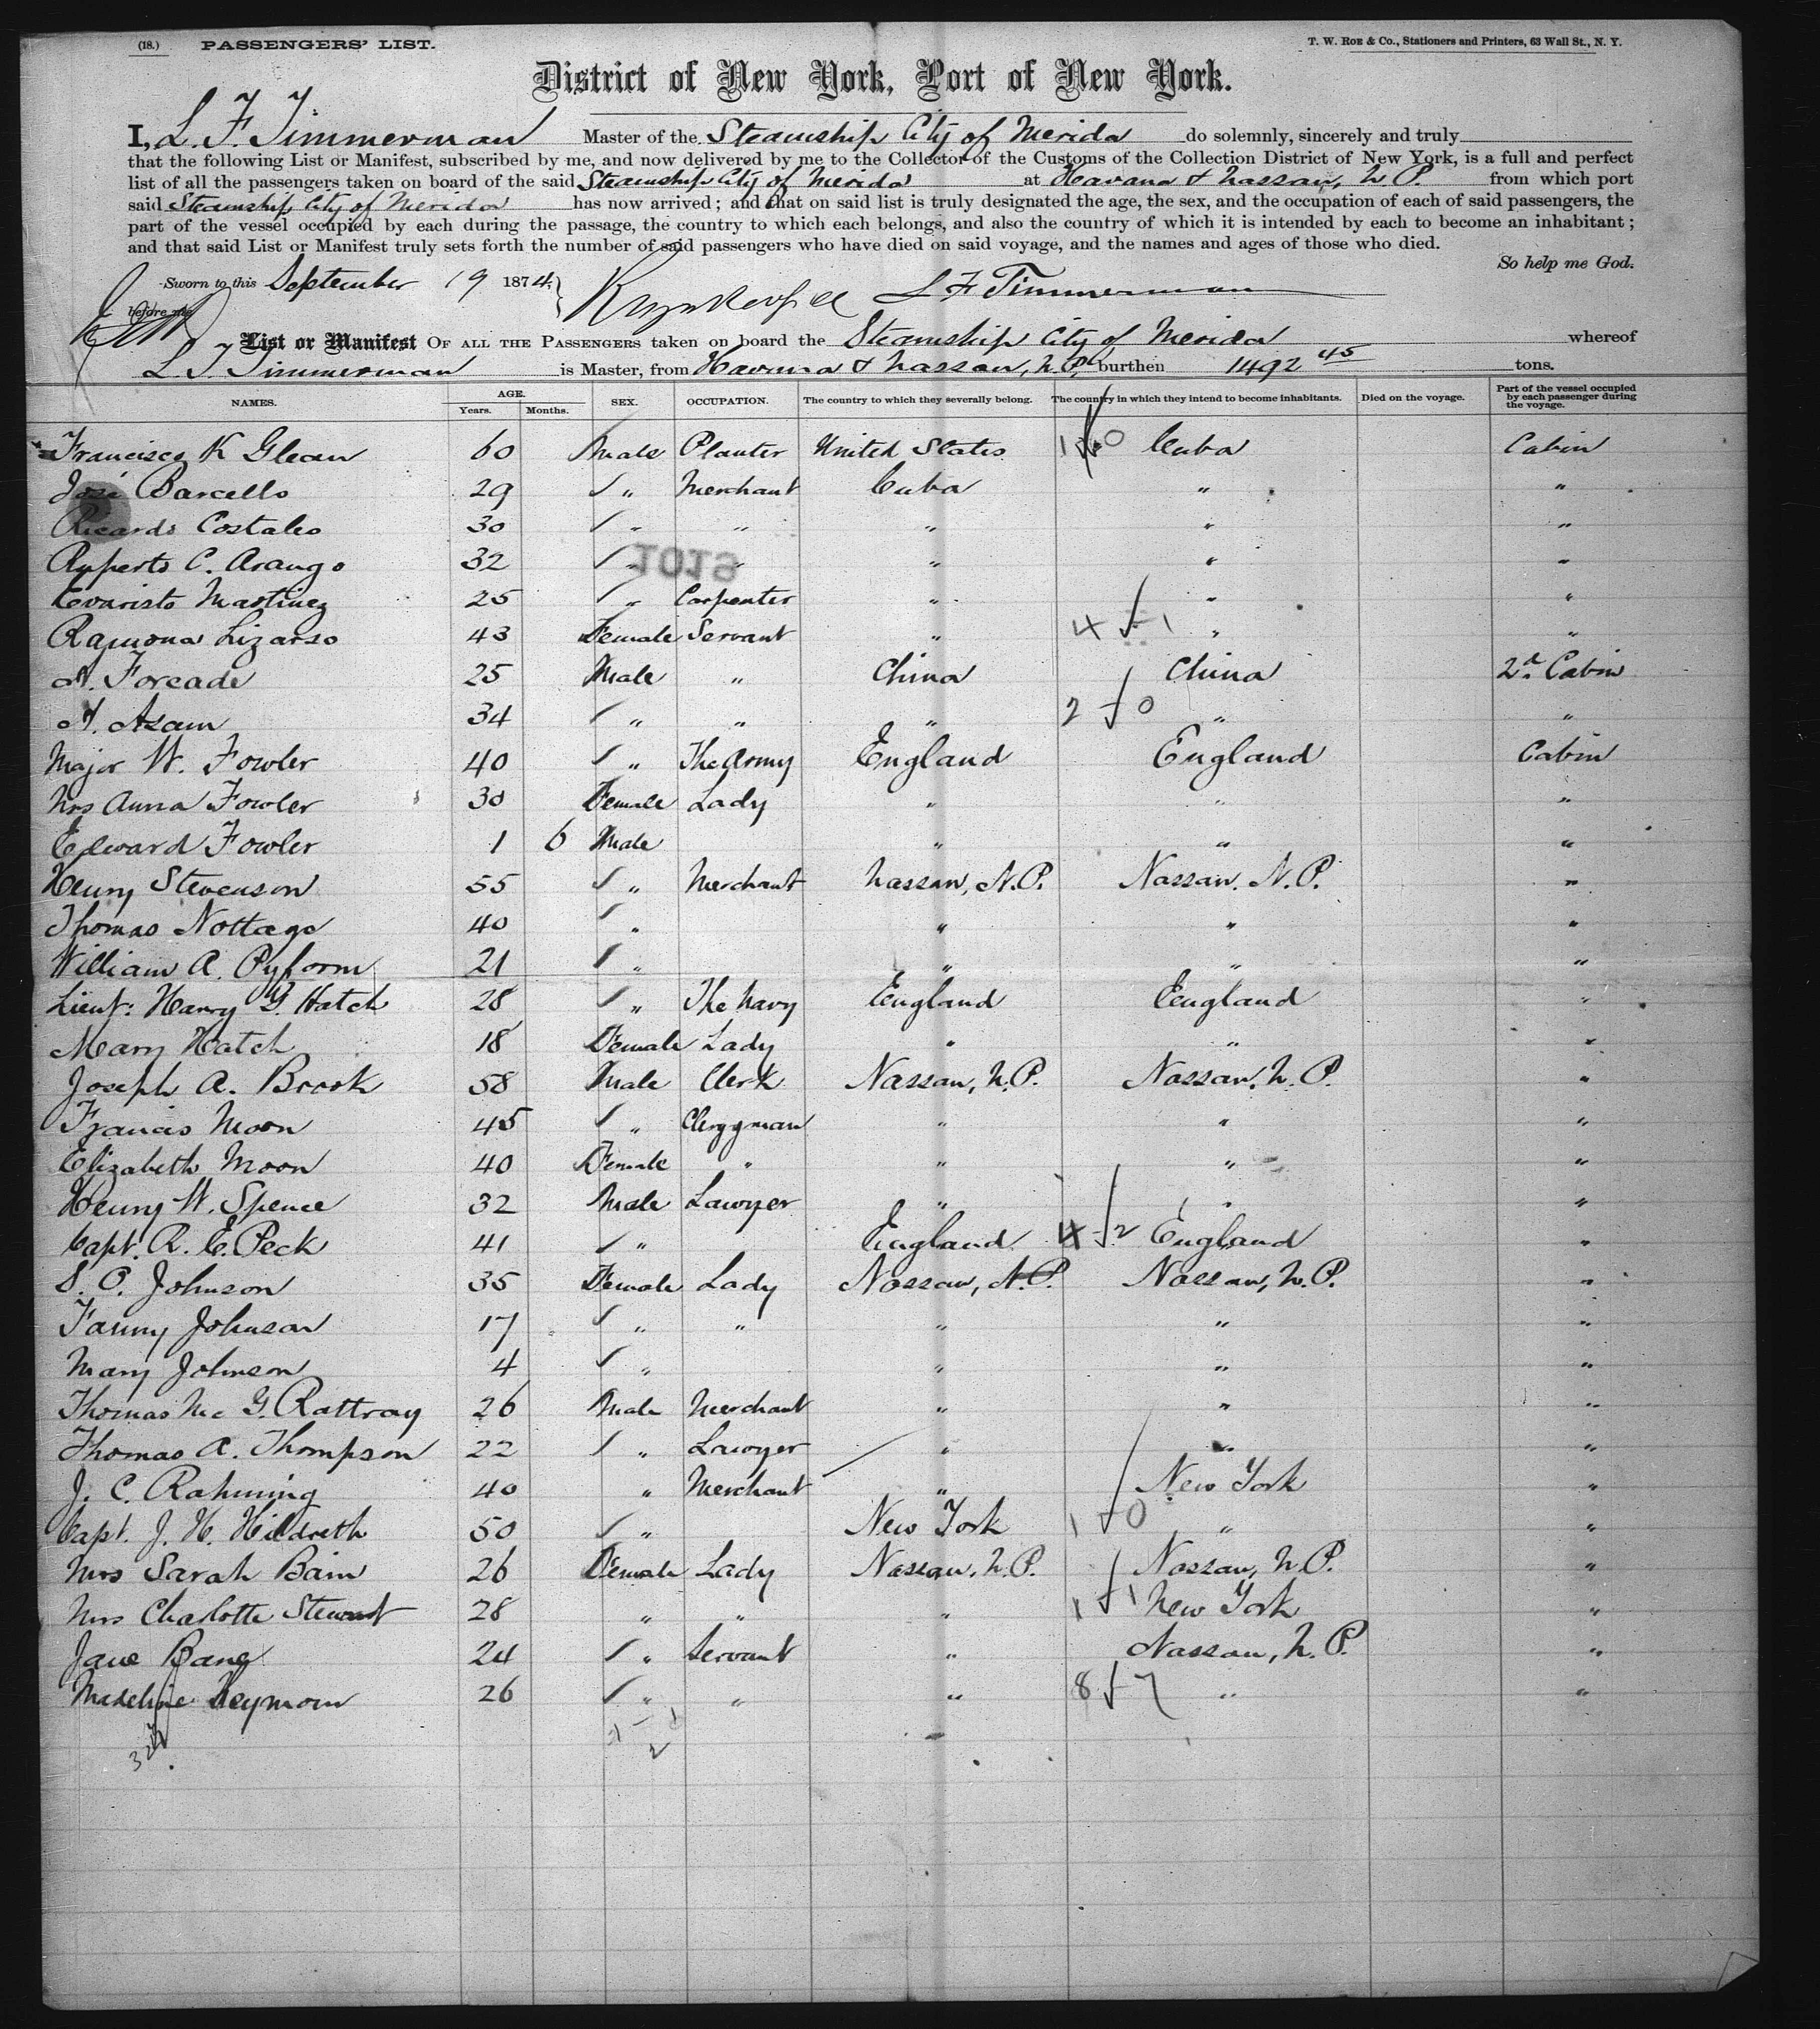 (18.) PASSENGERS' LIST. T. W. ROE & Co., Stationers and Printers, 63 Wall St., N. Y.
District of New York, Port of New York.
I, L. F. Timmerman Master of the Steamship City of Merida do solemnly, sincerely and truly
that the following List or Manifest, subscribed by me, and now delivered by me to the Collector of the Customs of the Collection District of New York, is a full and perfect
list of all the passengers taken on board of the said Steamship City of Merida at Havana & Nassau, N. P. from which port
said Steamship City of Merida has now arrived; and that on said list is truly designated the age, the sex, and the occupation of each of said passengers, the
part of the vessel occupied by each during the passage, the country to which each belongs, and also the country of which it is intended by each to become an inhabitant;
and that said List or Manifest truly sets forth the number of said passengers who have died on said voyage, and the names and ages of those who died.
So help me God.
Sworn to this September 19 1874. L F Timmerman
before me
List or Manifest OF ALL THE PASSENGERS taken on board the Steamship City of Merida whereof
L F Timmerman is Master, from Havana & Nassau, N. P. burthen 1492 45 tons.
NAMES. AGE. Years. Months. SEX. OCCUPATION. The country to which they severally belong. The country in which they intend to become inhabitants. Died on the voyage. Part of the vessel occupied by each passenger during the voyage.
Francisco K Glean 60 Male Planter United States 1 0 Cuba Cabin
José Barcello 29 " Merchant Cuba " "
Ricardo Costales 30 " " " " "
Ruperto C. Arango 32 " " " " "
1019
Evaristo Martinez 25 " Carpenter " " "
Ramona Lizarso 43 Female Servant " 4 1 " "
A. Forcade 25 Male " China China 2d Cabin
A. Asam 34 " " " 2 0 " "
Major W. Fowler 40 " The Army England England Cabin
Mrs Anna Fowler 30 Female Lady " " "
Edward Fowler 1 6 Male " " "
Henry Stevenson 55 " Merchant Nassau, N.P. Nassau. N.P. "
Thomas Nottage 40 " " " "
William A. Pyform 21 " " " "
Lieut: Harry G. Hatch 28 " The Navy England England "
Mary Hatch 18 Female Lady " " "
Joseph A. Brook 58 Male Clerk Nassau, N.P. Nassau, N.P. "
Francis Moon 45 " Clergyman " " "
Elizabeth Moon 40 Female " " " "
Henry W. Spence 32 Male Lawyer " " "
Capt. R. E. Peck 41 " England 4 2 England "
S. O. Johnson 35 Female Lady Nassau, N.P. Nassau, N.P. "
Fanny Johnson 17 " " " " "
Mary Johnson 4 " " " "
Thomas Mc G. Rattray 26 Male Merchant " " "
Thomas A. Thompson 22 " Lawyer " " "
J. C. Rahming 40 " Merchant " New York "
Capt. J. H. Hildreth 50 " New York 1 0 " "
Mrs Sarah Bain 26 Female Lady Nassau, N.P. Nassau, N.P. "
Mrs Charlotte Stewart 28 " " " 1 1 New York "
Jane Bang 24 " Servant " Nassau, N.P. "
Madeline Seymour 26 " " " 8 7 " "